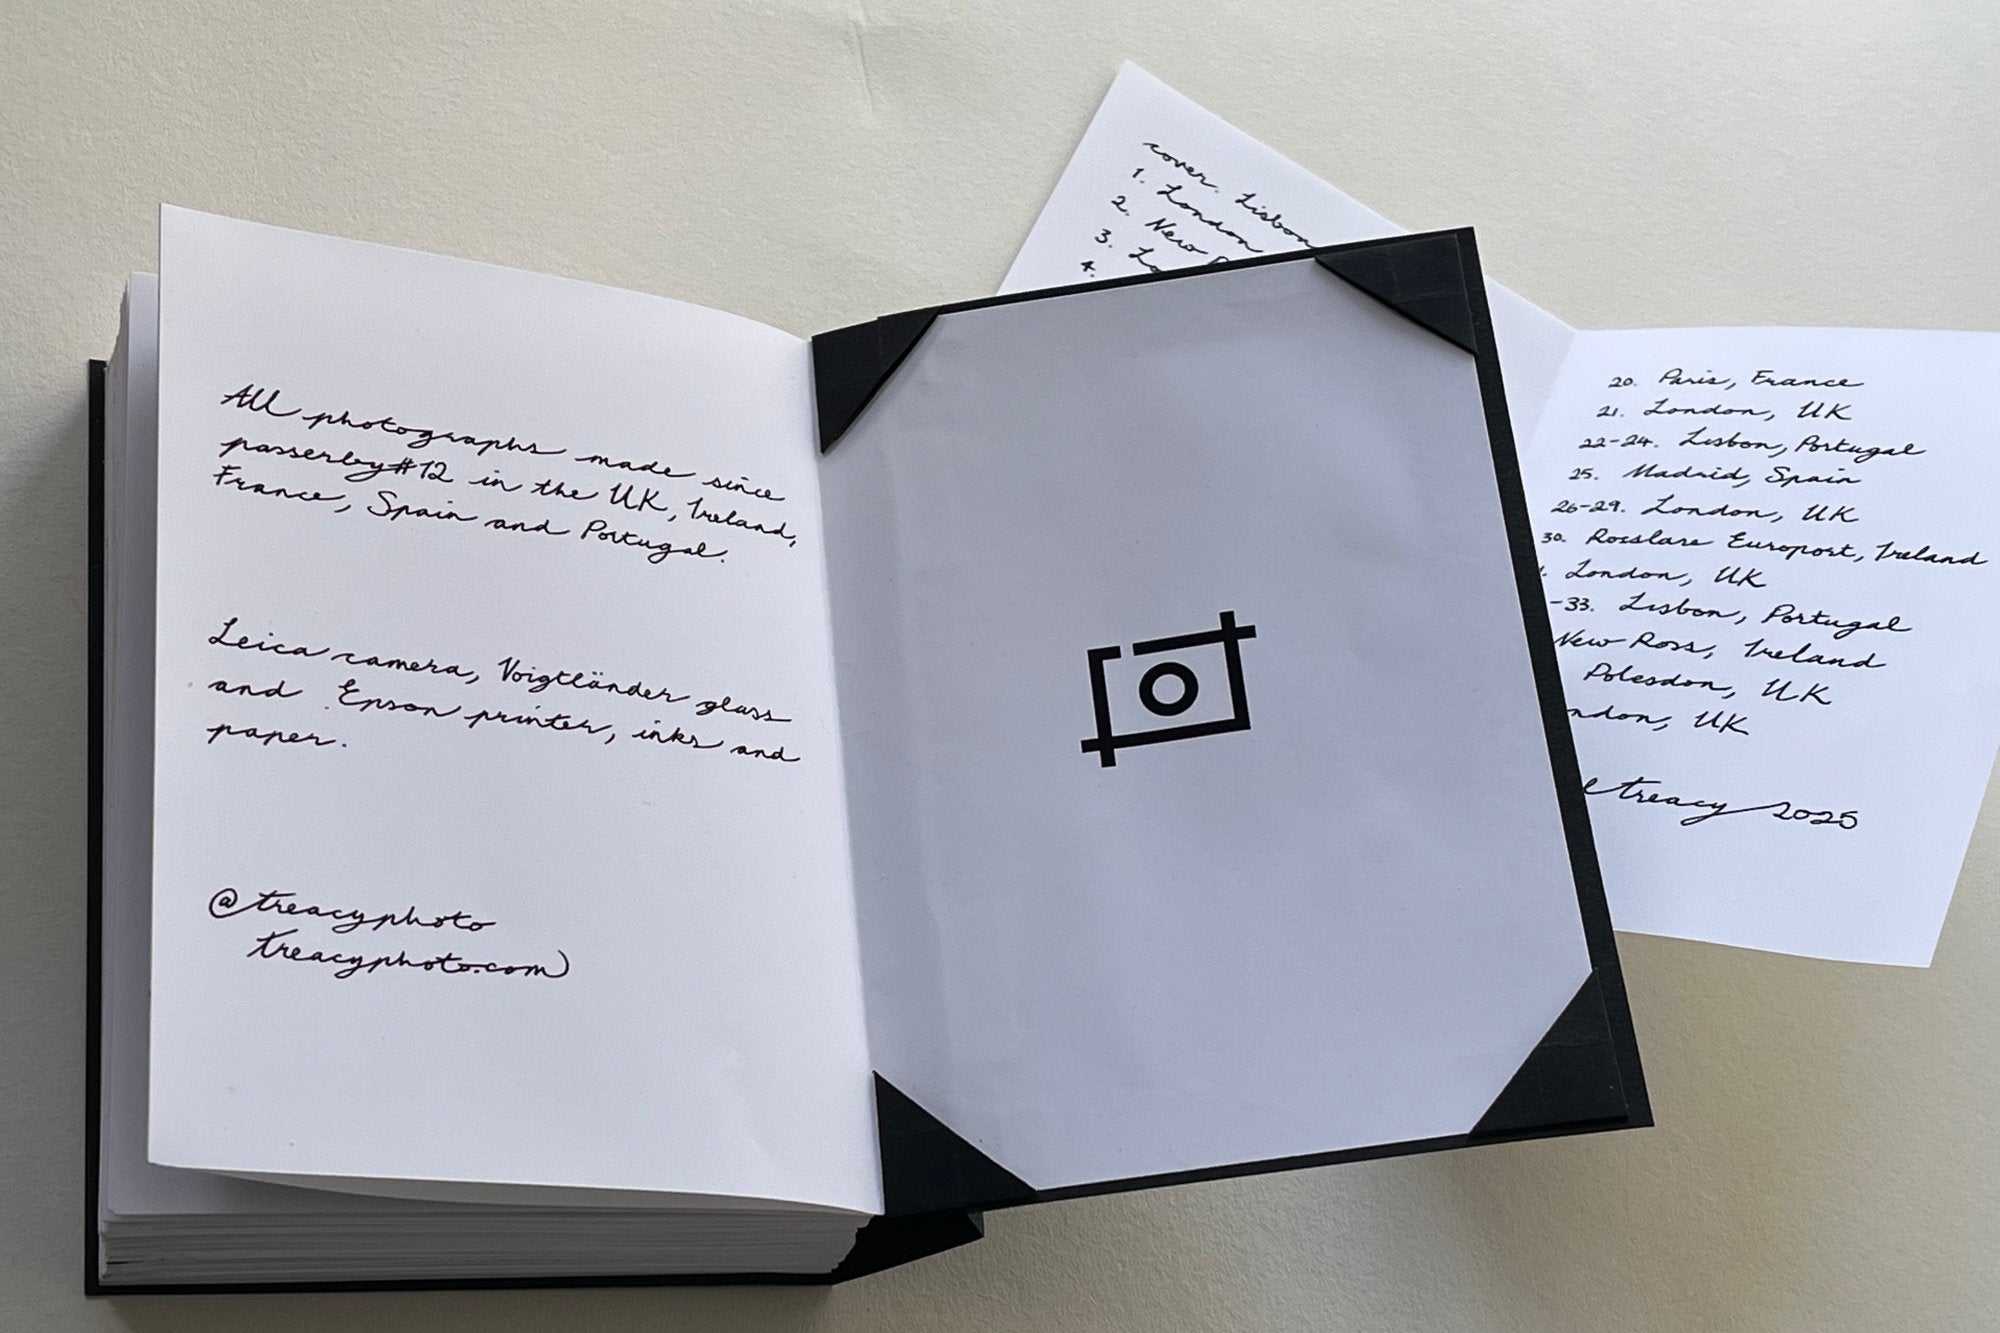 All photographs made since
passerby#12 in the UK, Ireland,
France, Spain and Portugal.
Leica camera, Voigtländer glass
and Epson printer, inks and
paper.
@treacyphoto
treacyphoto.com
cover. Lisbon
1. London
2. New
3.
4.
20. Paris, France
21. London, UK
22-24. Lisbon, Portugal
25. Madrid, Spain
26-29. London, UK
30. Rosslare Europort, Ireland
London, UK
-33. Lisbon, Portugal
New Ross, Ireland
Polesdon, UK
UK
treacy 2025